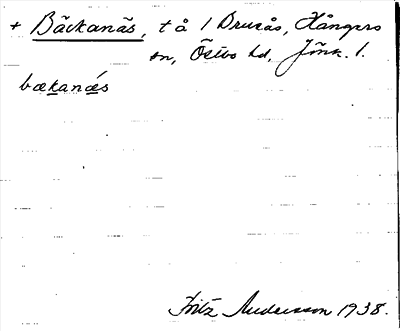 + Bäckanäs, t å 1 Drusås, Hångers
sn, Östbo hd, Jönk. l.
bækanä́s
Fritz Andersson 1938.